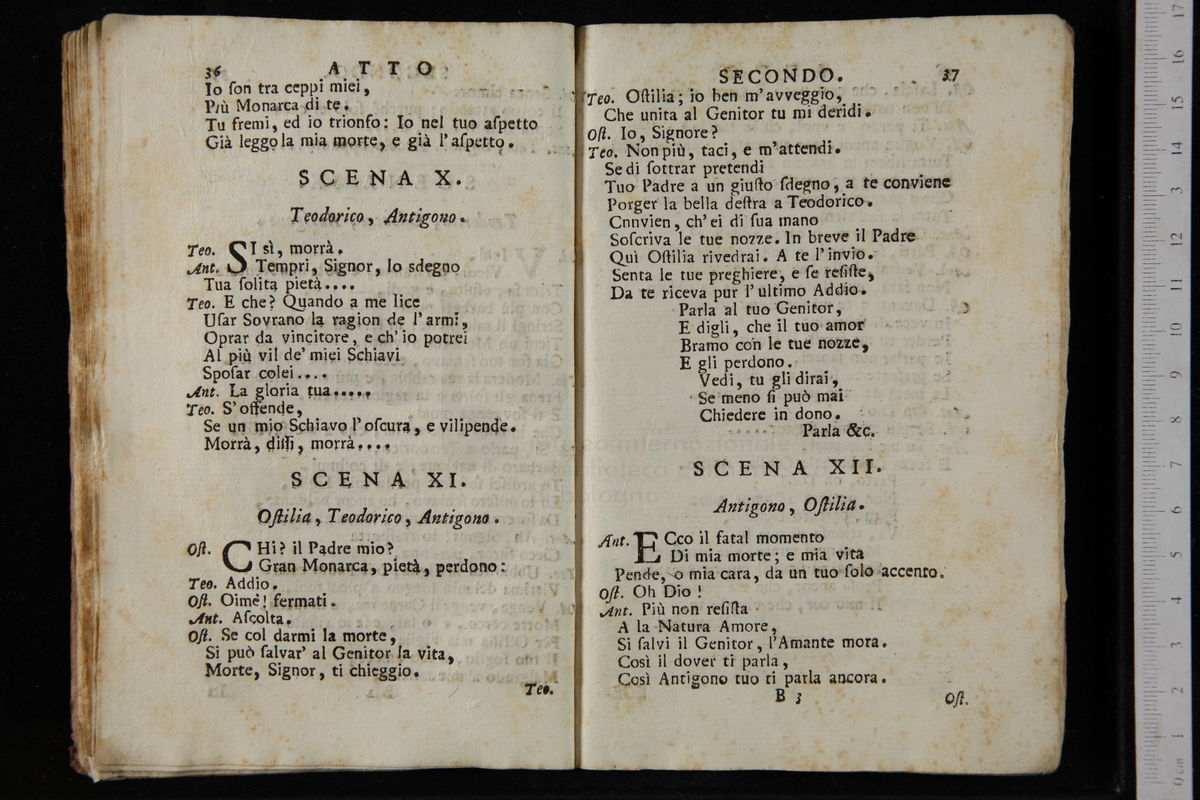 36 ATTO
Io ſon tra ceppi miei,
Più Monarca di te.
Tu fremi, ed io trionfo: Io nel tuo aſpetto
Già leggo la mia morte, e già l'aſpetto.
SCENA X.
Teodorico, Antigono.
Teo. SI sì, morrà.
Ant. Tempri, Signor, lo sdegno
Tua ſolita pietà....
Teo. E che? Quando a me lice
Uſar Sovrano la ragion de l'armi,
Oprar da vincitore, e ch'io potrei
Al più vil de' miei Schiavi
Spoſar colei....
Ant. La gloria tua.....
Teo. S'offende,
Se un mio Schiavo l'oſcura, e vilipende.
Morrà, diſſi, morrà....
SCENA XI.
Oſtilia, Teodorico, Antigono.
Oſt. CHi? il Padre mio?
Gran Monarca, pietà, perdono:
Teo. Addio.
Oſt. Oimè! fermati.
Ant. Aſcolta.
Oſt. Se col darmi la morte,
Si può ſalvar' al Genitor la vita,
Morte, Signor, ti chieggio.
Teo.
SECONDO. 37
Teo. Oſtilia; io ben m'avveggio,
Che unita al Genitor tu mi deridi.
Oſt. Io, Signore?
Teo. Non più, taci, e m'attendi.
Se di ſottrar pretendi
Tuo Padre a un giuſto ſdegno, a te conviene
Porger la bella deſtra a Teodorico.
Cnnvien, ch'ei di ſua mano
Soſcriva le tue nozze. In breve il Padre
Quì Oſtilia rivedrai. A te l'invio.
Senta le tue preghiere, e ſe reſiſte,
Da te riceva pur l'ultimo Addio.
Parla al tuo Genitor,
E digli, che il tuo amor
Bramo con le tue nozze,
E gli perdono.
Vedi, tu gli dirai,
Se meno ſi può mai
Chiedere in dono.
Parla &c.
SCENA XII.
Antigono, Oſtilia.
Ant. ECco il fatal momento
Di mia morte; e mia vita
Pende, o mia cara, da un tuo ſolo accento.
Oſt. Oh Dio!
Ant. Più non reſiſta
A la Natura Amore,
Si ſalvi il Genitor, l'Amante mora.
Così il dover ti parla,
Così Antigono tuo ti parla ancora.
B 3 Oſt.